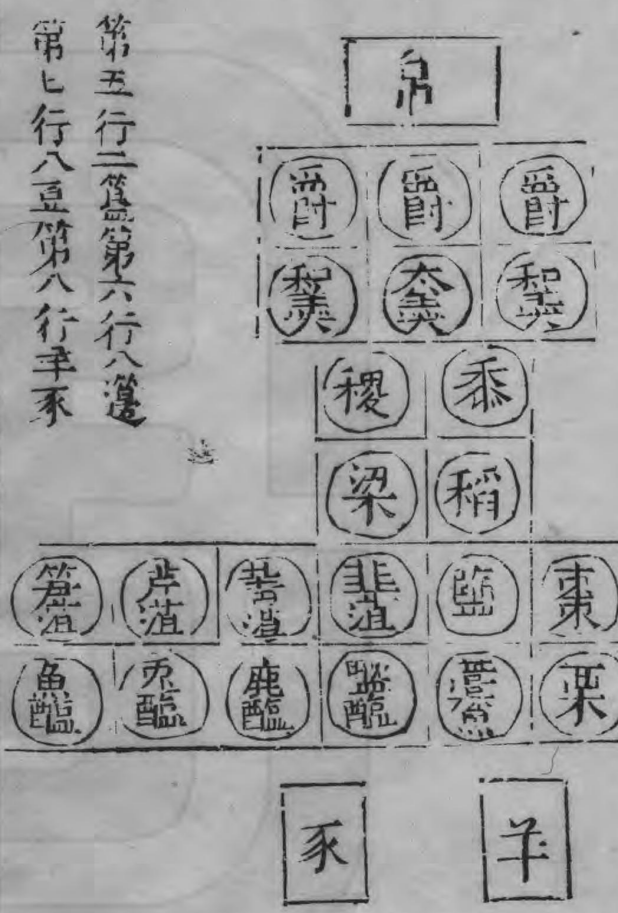 帛
爵 爵 爵
和羹 太羹 和羹
黍 稷
稻 梁
棗 鹽 韭菹 菁菹 芹菹 筍菹
栗 醓醢 鹿醢 兔醢 魚醢
羊 豕
第五行二簠第六行八籩
第七行八豆第八行羊豕